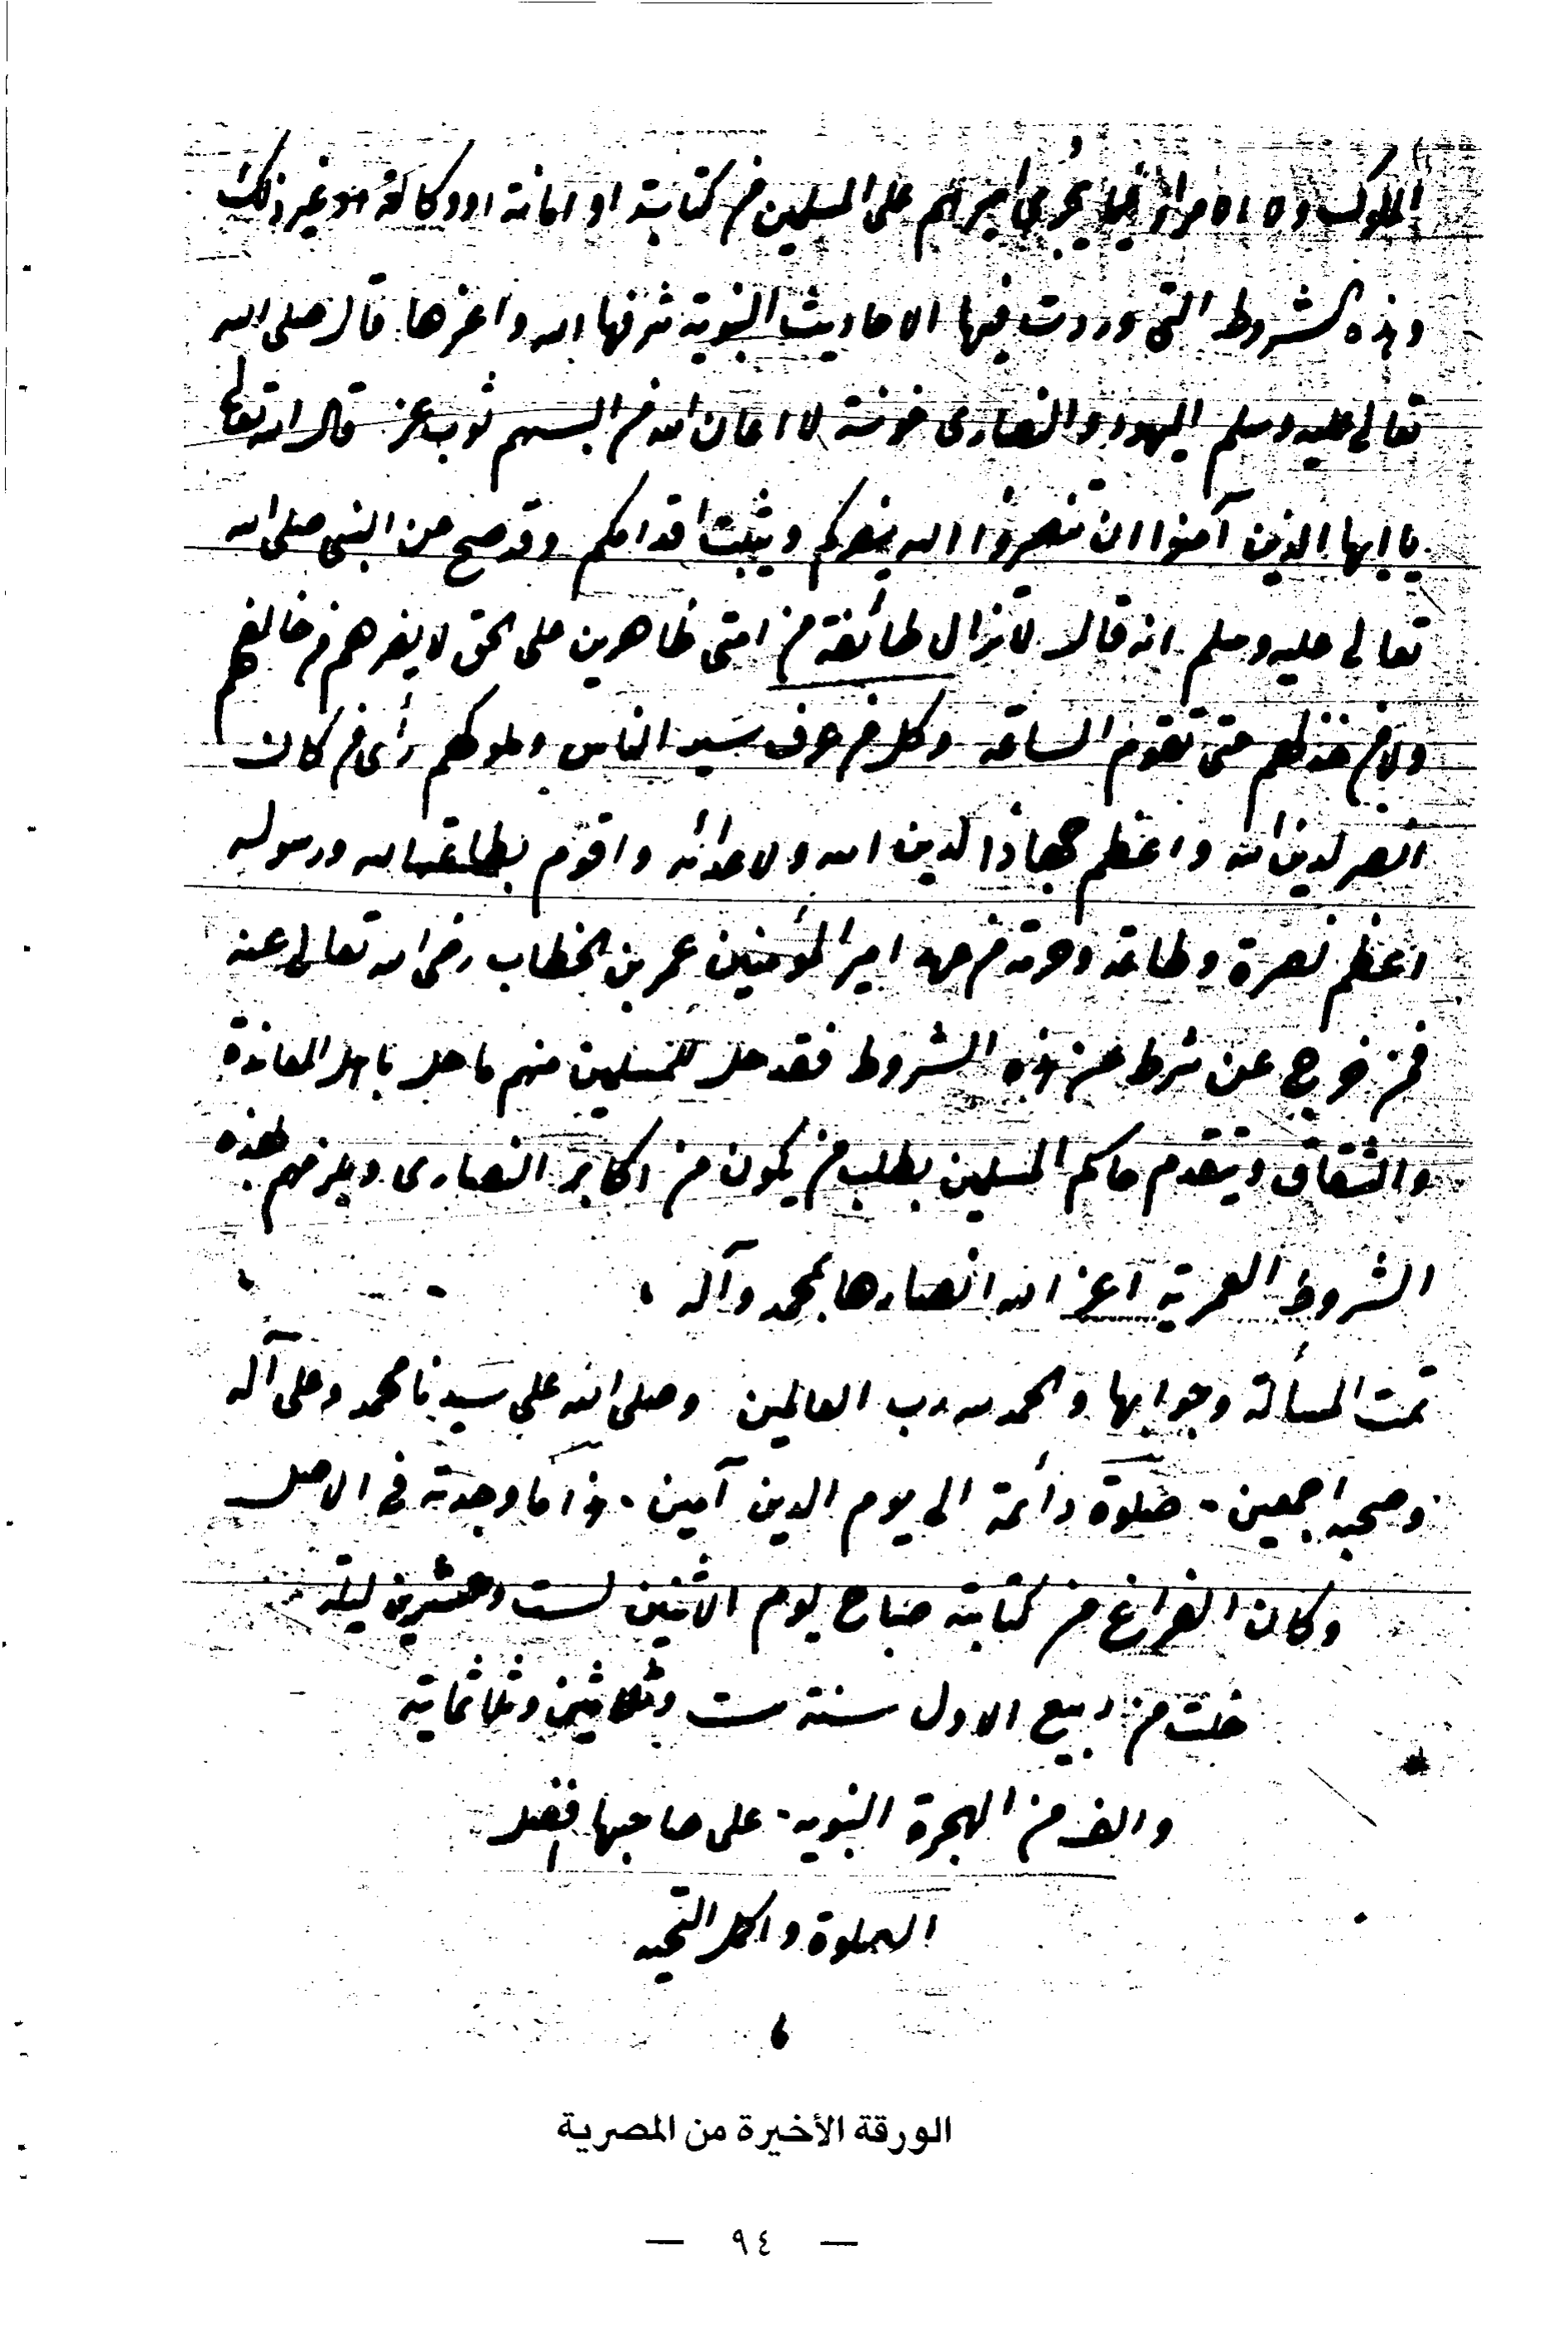 الملوك ولا الامراء فيما يجرى امرهم على المسلمين من كتابة او امانة او وكالة او غير ذلك
وهذه الشروط التى وردت فيها الاحاديث النبوية شرفها الله واعزها قال صلى الله
تعالى عليه وسلم اليهود والنصارى خونة لا اعان الله من البسهم ثوب عز قال الله تعالى
يا ايها الذين آمنوا ان تنصروا الله ينصركم ويثبت اقدامكم وقد صح عن النبى صلى الله
تعالى عليه وسلم انه قال لا تزال طائفة من امتى ظاهرين على الحق لا يضرهم من خالفهم
ولا من خذلهم حتى تقوم الساعة وكل من عرف سير الناس وملوكهم رأى من كان
انصر لدين الله واعظم جهادًا لدين الله ولاعدائه واقوم بطاعة الله ورسوله
اعظم نصرة وطاعة وحرمة من عهد امير المؤمنين عمر بن الخطاب رضى الله تعالى عنه
فمن خرج عن شرط من هذه الشروط فقد حل للمسلمين منهم ما حل باهل المعاندة
والشقاق ويتقدم حاكم المسلمين بطلب من يكون من اكابر النصارى ويلزمهم بهذه
الشروط العمرية اعز الله انصارها بمحمد وآله
تمت المسألة وجوابها والحمد لله رب العالمين وصلى الله على سيدنا محمد وعلى آله
وصحبه اجمعين - صلوة دائمة الى يوم الدين آمين - هذا ما وجدته فى الاصل
وكان الفراغ من كتابته صباح يوم الاثنين لست وعشرين ليلة
خلت من ربيع الاول سنة ست وثلاثين وثلاثماية
والف من الهجرة النبويه - على صاحبها افضل
الصلوة واكمل التحيه
الورقة الأخيرة من المصرية
— ٩٤ —